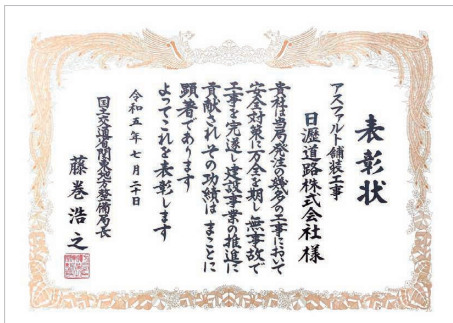 表彰状
アスファルト舗装工事
日瀝道路株式会社様
貴社は当局発注の幾多の工事において
安全対策に万全を期し無事故で
工事を完遂し建設事業の推進に
貢献されその功績はまことに
顕著であります
よってこれを表彰します
令和五年七月二十日
国土交通省関東地方整備局長
藤巻浩之